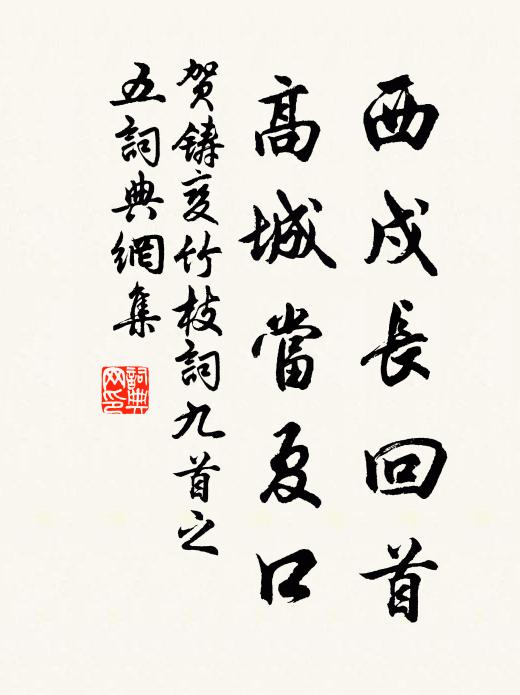 西戍長回首
高城當夏口
賀鑄變竹枝詞九首之
五詞典網集
詞典网印